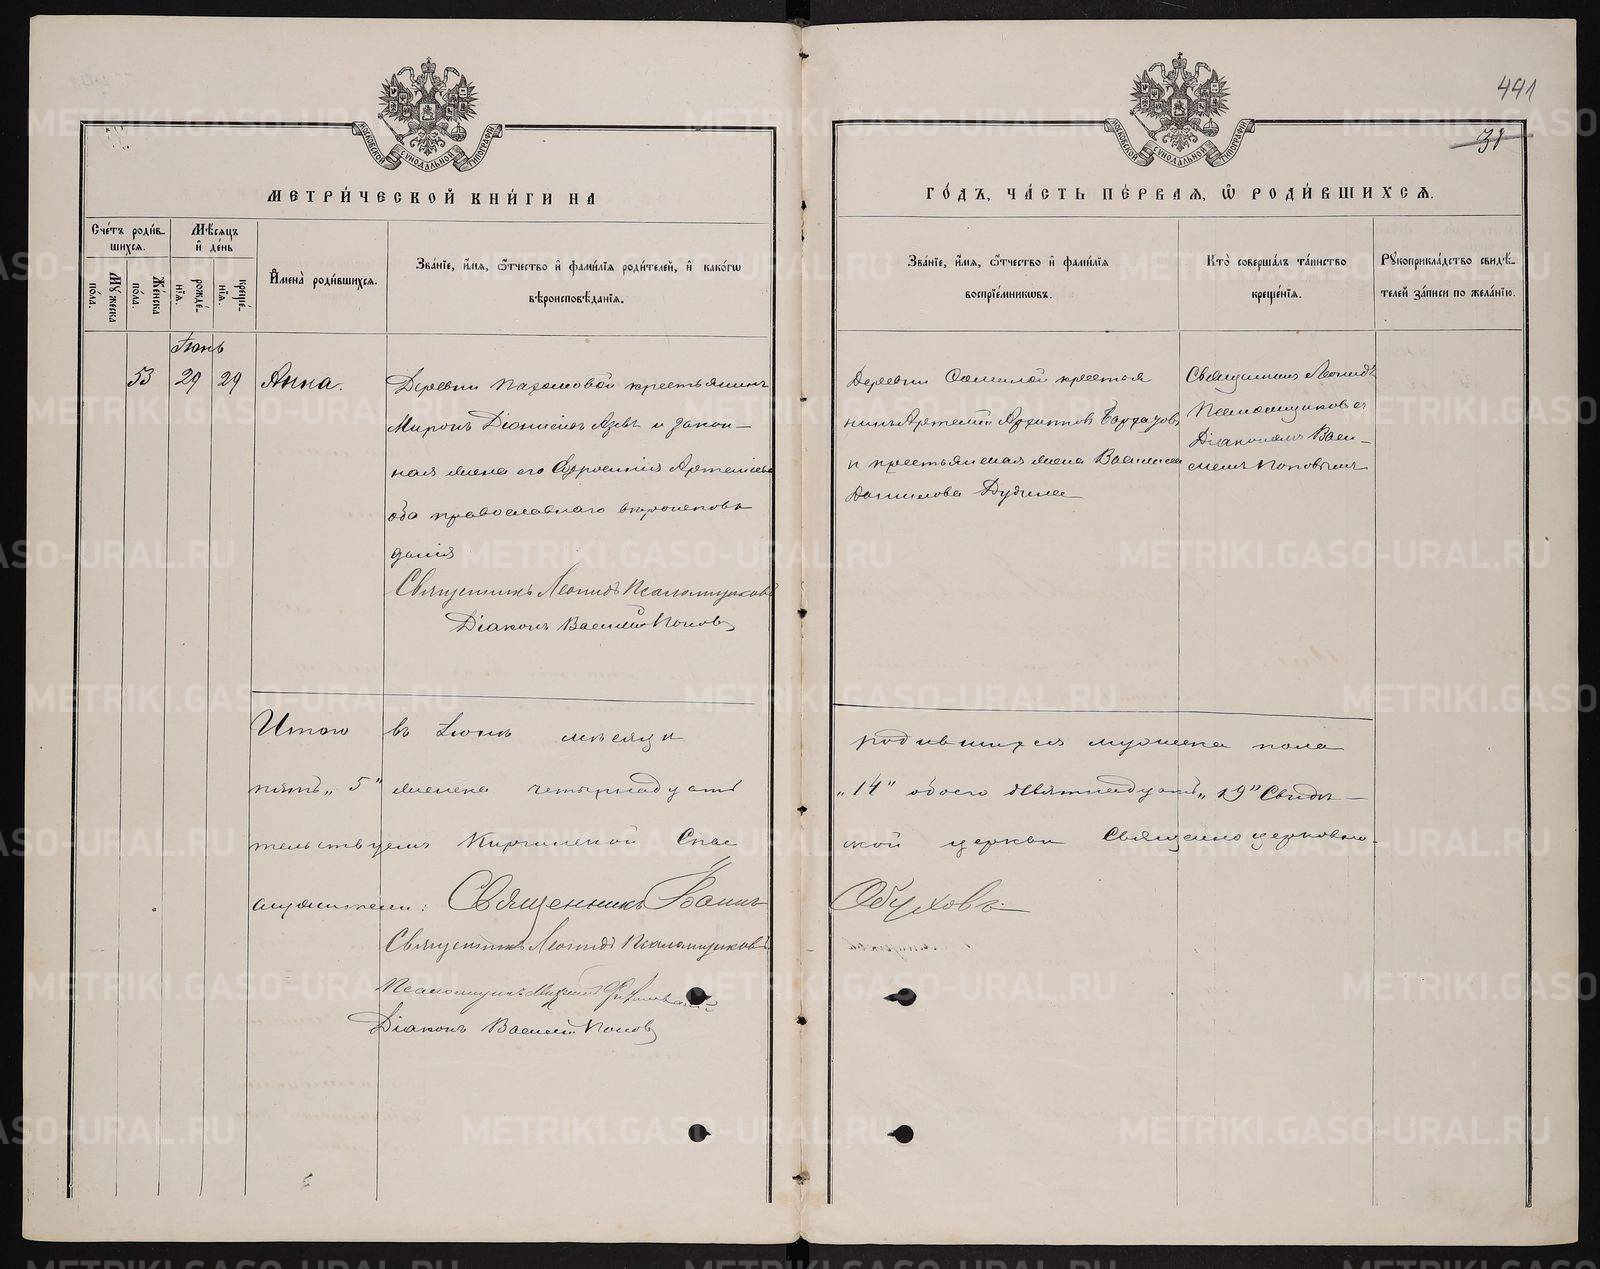 441
31
МОСКОВСКОЙ СѴНОДАЛЬНОЙ ТИПОГРАФІИ
МОСКОВСКОЙ СѴНОДАЛЬНОЙ ТИПОГРАФІИ
МЕТРИ́ЧЕСКОЙ КНИ́ГИ НА
ГО́ДЪ, ЧА́СТЬ ПЕ́РВАЯ, Ѡ҆ РОДИ́ВШИХСЯ.
Сче́тъ роди́в-
шихся.
Мѣ́сяцъ
и҆ де́нь
Мꙋ́жеска
по́ла.
Же́нска
по́ла.
рожде́-
нїя.
креще́-
нїя.
И҆мена̀ роди́вшихся.
Зва́нїе, и҆́мя, ѻ҆́тчество и҆ фами́лїя роди́телей, и҆ како́гѡ
вѣроисповѣ́данїя.
Зва́нїе, и҆́мя, ѻ҆́тчество и҆ фами́лїя
воспрїе́мникѡвъ.
Кто̀ соверша́лъ та́инство
креще́нїя.
Рꙋкоприкла́дство свидѣ́-
телей за́писи по жела́нїю.
Іюнь
53 29 29 Анна.
Деревни крестьянинъ
Миронъ Діонисіевъ Азевъ и закон-
ная жена его Артеміева
оба православнаго вѣроисповѣ
данія
Священникъ Леонидъ Псаломщиковъ
Діаконъ Василій Поповъ
Деревни крестья
нинъ Артемій
и крестьянская жена Василиса
Данилова Дудина
Священникъ Леонидъ
Псаломщиковъ съ
Діакономъ Васи-
ліемъ Поповымъ
Итого въ Іюнѣ мѣсяцѣ родившихся мужска пола
пять „5" женска четырнадцать „14" обоего девятнадцать „19" Свидѣ-
тельствуемъ Киргинской Спас ской церкви Священно церковно-
служители: Священникъ Іоаннъ Обуховъ
Священникъ Леонидъ Псаломщиковъ
Псаломщикъ
Діаконъ Василій Поповъ
METRIKI.GASO-URAL.RU